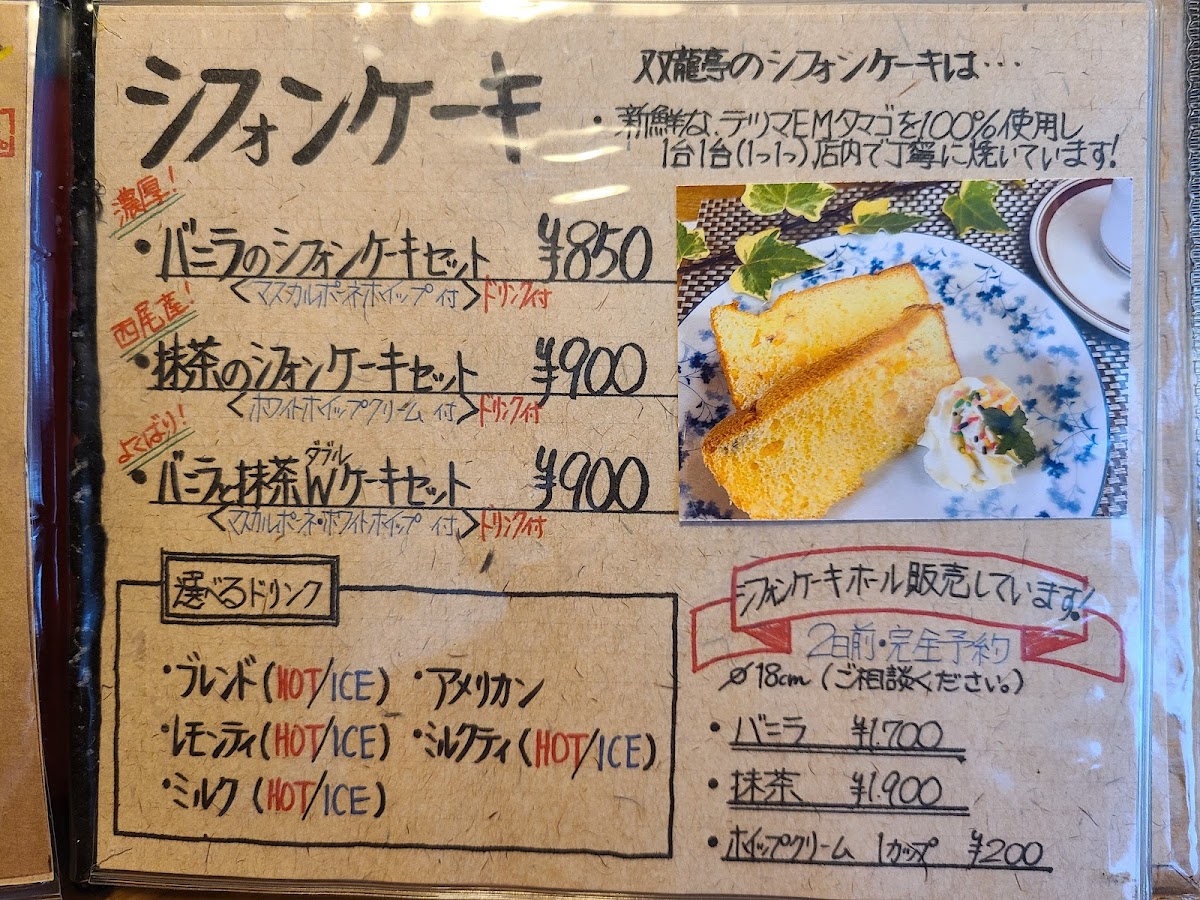 シフォンケーキ
双龍亭のシフォンケーキは…
・新鮮な、テヅマEMタマゴを100%使用し
1台1台(1っ1っ)、店内で丁寧に焼いています!
濃厚!
・バニラのシフォンケーキセット ¥850
<マスカルポーネホイップ付> ドリンク付
西尾産!
・抹茶のシフォンケーキセット ¥900
<ホワイトホイップクリーム付> ドリンク付
よくばり!
ダブル
・バニラと抹茶Wケーキセット ¥900
<マスカルポーネ・ホワイトホイップ付> ドリンク付
選べるドリンク
・ブレンド(HOT/ICE) ・アメリカン
・レモンティ(HOT/ICE) ・ミルクティ(HOT/ICE)
・ミルク(HOT/ICE)
シフォンケーキホール販売しています!
2日前・完全予約
φ18cm(ご相談ください。)
・バニラ ¥1.700
・抹茶 ¥1.900
・ホイップクリーム 1カップ ¥200